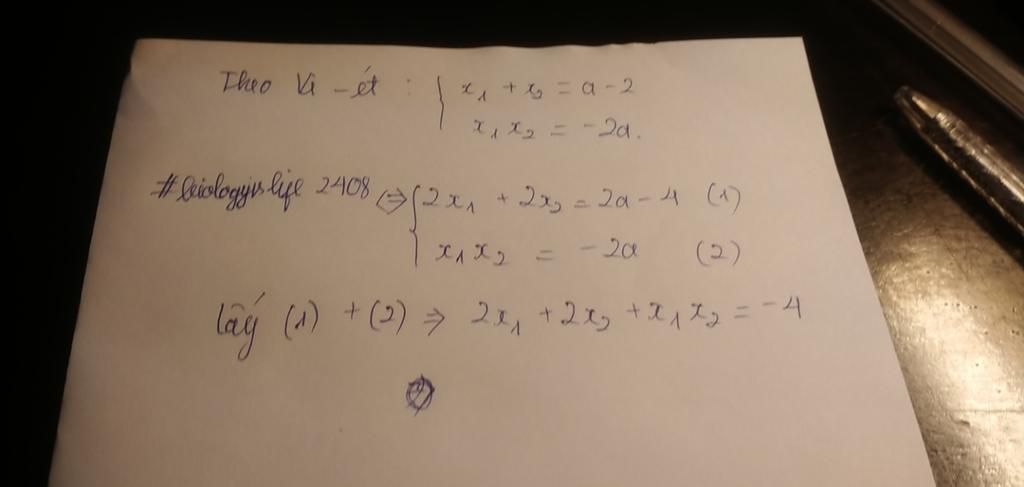 Theo Vi-ét : { x₁ + x₂ = a - 2
x₁ x₂ = -2a.
#biologyislife 2408 ⇔ { 2x₁ + 2x₂ = 2a - 4 (1)
x₁ x₂ = -2a (2)
Lấy (1) + (2) ⇒ 2x₁ + 2x₂ + x₁ x₂ = -4